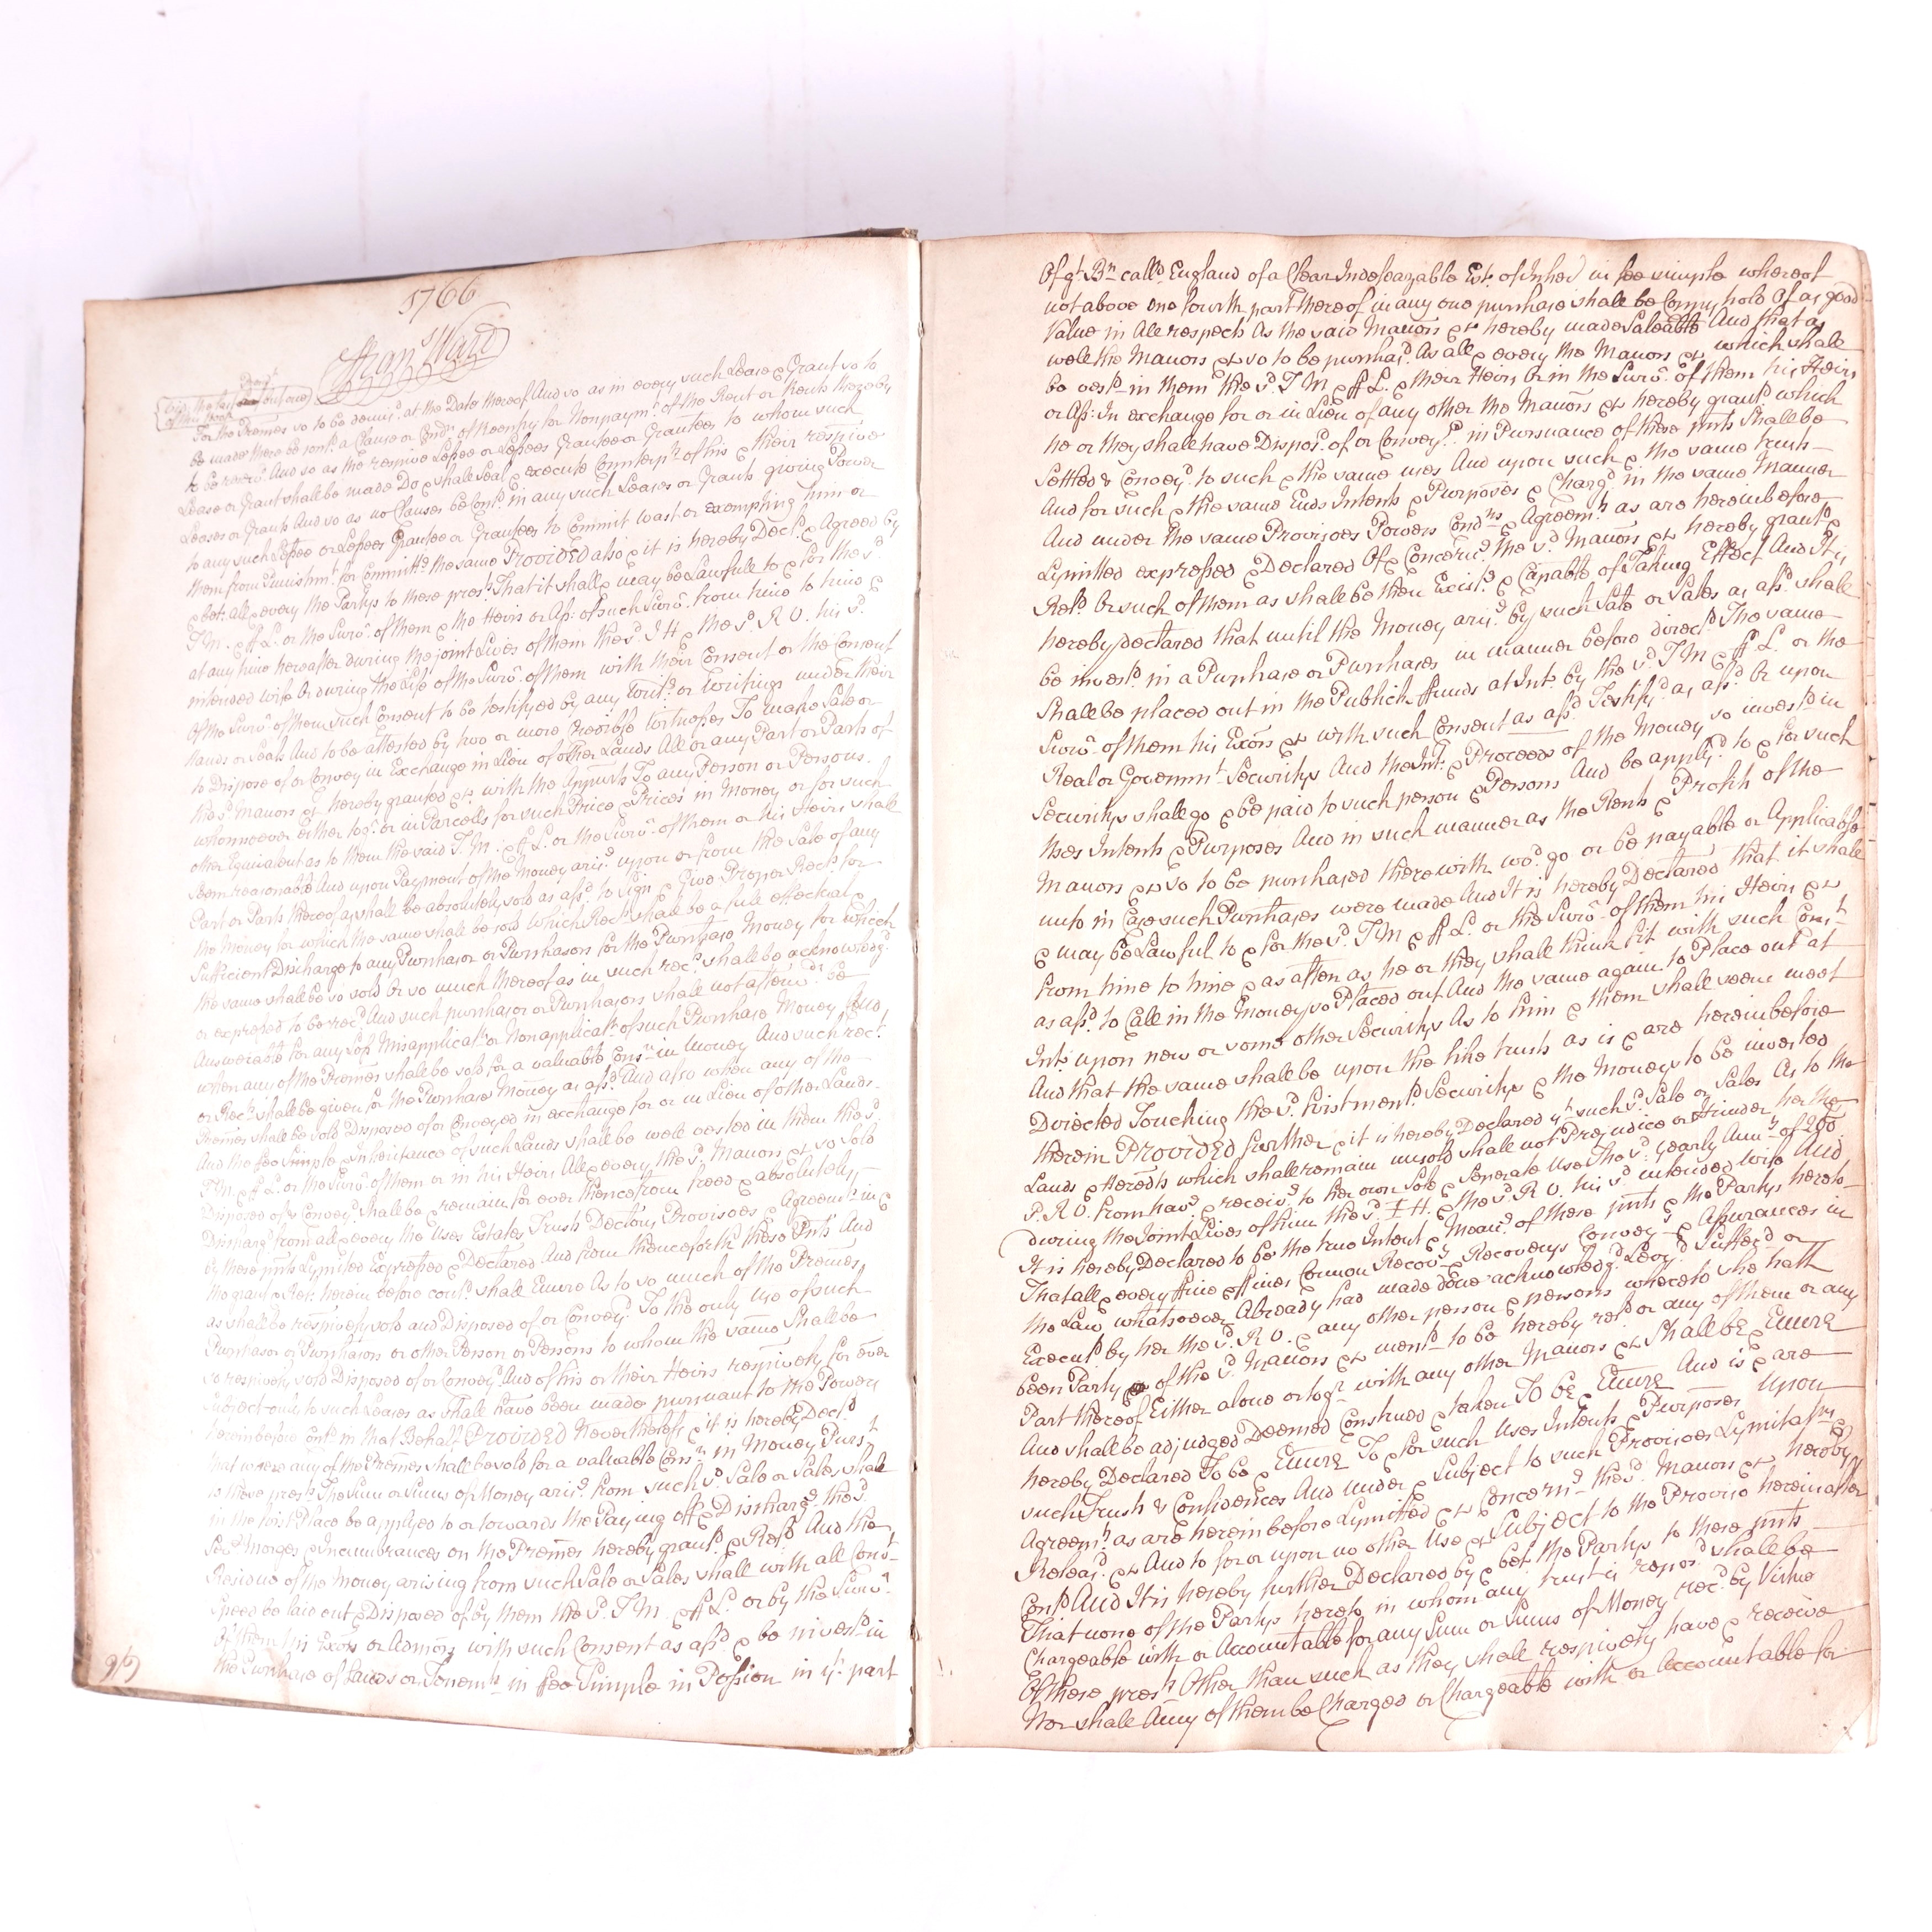 1766
Fran.s Ward
For the Premes so to be demis.d at the Date thereof And so as in every such Lease & Grant so to
be made there be cont.d a Clause or Cond.n of Reentry for Nonpaym.t of the Rent or Rents thereby
to be reserv.d And so as the respive Lessee or Lessees Grantee or Grantees to whom such
Lease or Grant shall be made Do & shall seal & execute Counterp.ts of his & their respive
Leases or Grants And so as no Clauses be Cont.d in any such Leases or Grants giving Power
to any such Lessee or Lessees Grantee or Grantees to Commit Wast or exempting him or
them from Punishm.t for Committ.g the same Provided also & it is hereby Decl.d & Agreed by
& bet. all & every the Partys to these pres.ts That it shall & may be Lawfull to & for the s.d
T.M. & ff L. or the Surv.r of them & the Heirs or Ass. of such Surv.r from time to time &
at any time hereafter during the joint Lives of them the s.d I H & the s.d R V. his s.d
intended wife & during the Life of the Surv.r of them with their Consent or the Consent
Of the Surv.r of them such Consent to be testifyed by any Writ.g or Writings under their
Hands or Seals And to be attested by two or more credible Witnesses To make Sale or
to Dispose of or Convey in Exchange in Lieu of other Lands All or any Part or Parts of
the s.d Manors &c hereby granted &c with the Appurts To any Person or Persons
whomsoever either tog.r or in Parcells for such Price & Prices in Money or for such
other Equivalent as to them the said T.M. & ff L. or the Surv.r of them or his Heirs shall
seem reasonable And upon Payment of the Money aris.g upon or from the Sale of any
Part or Parts thereof as shall be absolutely sold as afs.d to sign & Give Proper Rec.ts for
the Money for which the same shall be sold Which Rec.ts shall be a full effectual &
Sufficient Discharge to any Purchasor or Purchasors for the Purchase Money for which
the same shall be so sold Or so much thereof as in such rec.ts shall be acknowledg.d
or expressed to be rec.d And such purchasor or Purchasors shall not afterw.ds be
Answerable for any Loss Misapplicat.n or Nonapplicat.n of such Purchase Money And
when any of the Premes shall be sold for a valuable Cons.n in Money And such rec.t
or Rec.ts shall be given for the Purchase Money as afs.d And also when any of the
Premes shall be sold Disposed of or Conveyed in exchange for or in Lieu of other Lands
And the fee Simple & Inheritance of such Lands shall be well vested in them the s.d
T M. & ff L. or the Surv.r of them or in his Heirs All & every the s.d Manors &c so sold
Disposed of & Convey.d Shall be & remain for ever thenceforth freed & absolutely
Discharg.d from all & every the Uses Estates Trusts Declons Provisoes & Agreem.ts in &
by these pnts Lymited Expressed & Declared And from thenceforth these Pnts And
the grant & Rel. herein before cont.d shall Enure As to so much of the Premes
as shall be respively sold and Disposed of or Convey.d To the only use of such
Purchasor or Purchasors or other Person or Persons to whom the same Shall be
so respively sold Disposed of or Convey.d And of his or their Heirs respively for ever
Subject only to such Leases as shall have been made pursuant to the Powers
hereinbefore cont.d in that Behalf Provided Nevertheless & it is hereby Decl.d
that when any of the Premes shall be sold for a valuable Cons.n in Money Purs.t
to these pres.ts The Sum or Sums of Money aris.g from such s.d Sale or Sales shall
in the first Place be applyed to or towards the Paying off & Discharg.g the s.d
Sev.l Morges & Incumbrances on the Premes hereby grant.d & Rel.d And the
Residue of the Money arising from such Sale or Sales shall with all Conv.t
Speed be laid out & Disposed of by them the s.d T M. & ff L. or by the Surv.r
Of them his Exors or Admors with such Consent as afs.d & be invest.d in
the Purchase of Lands or Tenem.ts in fee Simple in Possion in y.t part
Of g.t B.n call.d England of a Clear Indefeazable Est. of Inher. in fee simple whereof
not above one fourth part thereof in any one purchase shall be Coppy hold Of as good
Value in All respects As the said Manors &c hereby made Saleable And that as
well the Manors &c so to be purchas.d As all & every the Manors &c which shall
be vest.d in them the s.d T M & ff L. & their Heirs Or in the Surv.r of them his Heirs
or Ass. In exchange for or in Lieu of any other the Manors &c hereby grant.d which
he or they shall have Dispos.d of or Convey.d in Pursuance of these pnts Shall be
Settled & Convey.d to such & the same uses And upon such & the same trusts
And for such & the same Ends Intents & Purposes & Charg.d in the same Manner
And under the same Provisoes Powers Cond.ns & Agreem.ts as are hereinbefore
Lymitted expressed & Declared Of & Concern.g the s.d Manors &c hereby grant.d &
Rel.d Or such of them as shall be then Exist.g & Capable of Taking Effect And It is
hereby declared that until the Money aris.g by such Sale or Sales as afs.d shall
be invest.d in a Purchase or Purchases in manner before direct.d The same
Shall be placed out in the Publick ffunds at Int. by the s.d T M & ff L. or the
Surv.r of them his Exors &c with such Consent as afs.d Testify.d as afs.d Or upon
Real or Governm.t Securitys And the Int. & Proceeds of the Money so invest.d in
Securitys shall go & be paid to such person & Persons And be apply.d to & for such
Uses Intents & Purposes And in such manner as the Rents & Profits of the
Manors &c so to be purchased therewith wo.d go or be payable or Applicable
unto in Case such Purchases were made And It is hereby Declared that it shall
& may be Lawful to & for the s.d T M & ff L. or the Surv.r of them his Heirs &c
from time to time & as often as he or they shall think fit with such Cons.t
as afs.d to Call in the Money so Placed out And the same again to Place out at
Int. upon new or some other Securitys As to him & them shall seem meet
And that the same shall be upon the like trusts as is & are hereinbefore
Directed Touching the s.d first ment.d Securitys & the Moneys to be invested
therein Provided further & it is hereby Declared y.t such s.d Sale or Sales As to the
Lands & Heredts which shall remain unsold shall not Prejudice or Hinder her the
s.d R V. from hav.g & receiv.g to her own Sole & Seperate Use The s.d yearly Ann.y of 200
during the Joint Lives of him the s.d I H. & the s.d R V. his s.d intended wife And
It is hereby Declared to be the true Intent & Mean.g of these pnts & the Partys hereto
That all & every ffine & ffines Common Recov.y & Recoverys Convey.s & Assurances in
the Law whatsoever Already had made done acknowledg.d Levy.d Suffer.d or
Execut.d by her the s.d R V. & any other person & persons whereto she hath
been Party of the s.d Manors &c ment.d to be hereby rel.d or any of them or any
Part thereof Either alone or tog.r with any other Manors &c Shall be & Enure
And shall be adjudged Deemed Construed & taken To be & Enure And is & are
hereby Declared To be & Enure To & for such Uses Intents & Purposes Upon
such Trusts & Confidences And under & Subject to such Provisoes Lymitat.ns &
Agreem.ts as are herein before Lymitted &c Concern.g the s.d Manors &c hereby
Releas.d &c And to for or upon no other Use &c Subject to the Proviso hereinafter
Cont.d And It is hereby further Declared by & bet. the Partys to these pnts
That none of the Partys hereto in whom any trust is repos.d shall be
Chargeable with or Accountable for any Sum or Sums of Money rec.d by Virtue
Of these pres.ts Other than such as they shall respively have & receive
Nor shall Any of them be Charged or Chargeable with or Accountable for